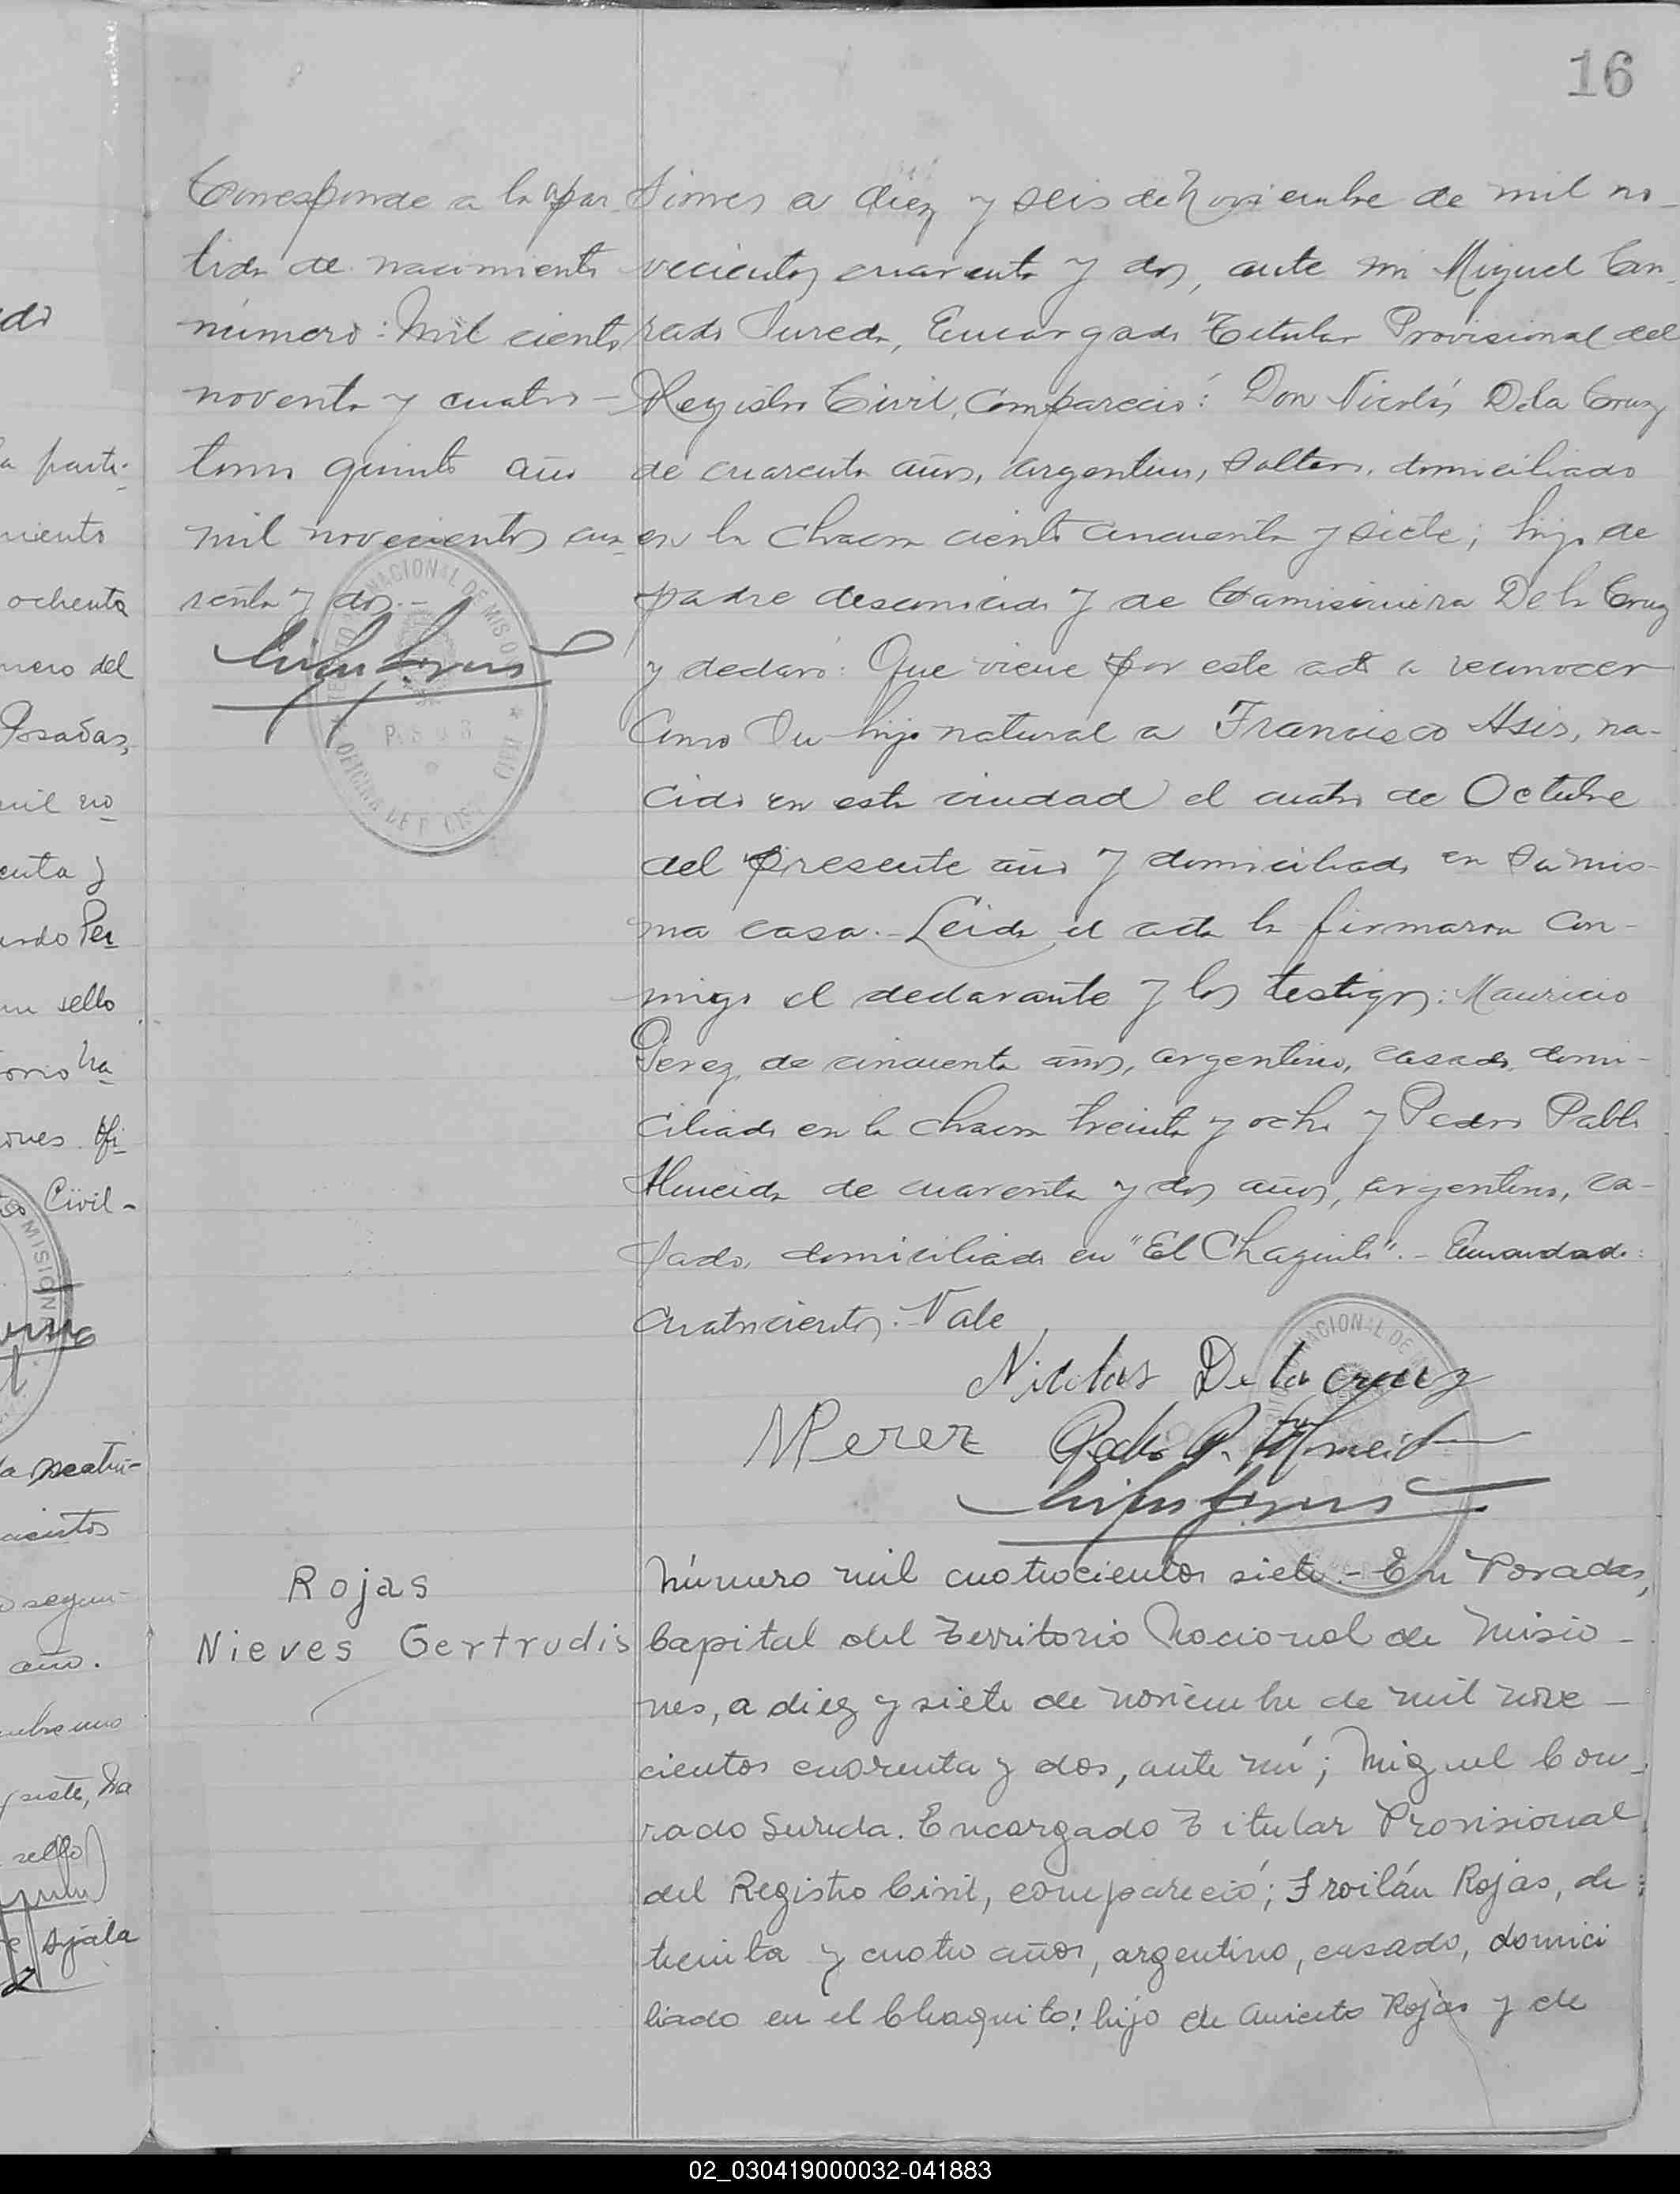 16
Corresponde a la par
tida de nacimiento
número: Mil ciento
noventa y cuatro -
tomo quinto año
mil novecientos cua
renta y dos.-
TERRITORIO NACIONAL DE MISIONES
OFICINA DEL REGISTRO CIVIL
siones a diez y seis de Noviembre de mil no-
vecientos cuarenta y dos, ante mi Miguel Con-
rado Sureda, Encargado Titular Provisional del
Registro Civil, Compareció: Don Nicolás De la Cruz
de cuarenta años, argentino, soltero, domiciliado
en la chacra ciento cincuenta y siete; hijo de
padre desconocido y de De la Cruz
y declaró: Que viene por este acto a reconocer
como su hijo natural a Francisco Asis, na-
cido en esta ciudad el cuatro de Octubre
del presente año y domiciliado en su mis-
ma casa.- Leida el acta la firmaron con-
migo el declarante y los testigos: Mauricio
Perez, de cincuenta años, argentino, casado, domi-
ciliado en la chacra treinta y ocho y Pedro Pablo
Almeida de cuarenta y dos años, argentino, ca-
sado, domiciliado en "El Chaquito".- Enmendado:
cuatrocientos. Vale
Nicolas De la cruz
MPerez Pedro P. Almeida
Rojas
Nieves Gertrudis
Número mil cuatrocientos siete.- En Posadas,
Capital del Territorio Nacional de Misio-
nes, a diez y siete de noviembre de mil nove-
cientos cuarenta y dos, ante mí; Miguel Con-
rado Sureda. Encargado Titular Provisional
del Registro Civil, compareció; Froilán Rojas, de
treinta y cuatro años, argentino, casado, domici
liado en el Chaquito; hijo de Aniceto Rojas y de
la parti-
miento
ochenta
mero del
Posadas,
mil no
enta y
Per
un sello
ha
Civil-
año.
siete, ha
sello
Ayala
02_030419000032-041883